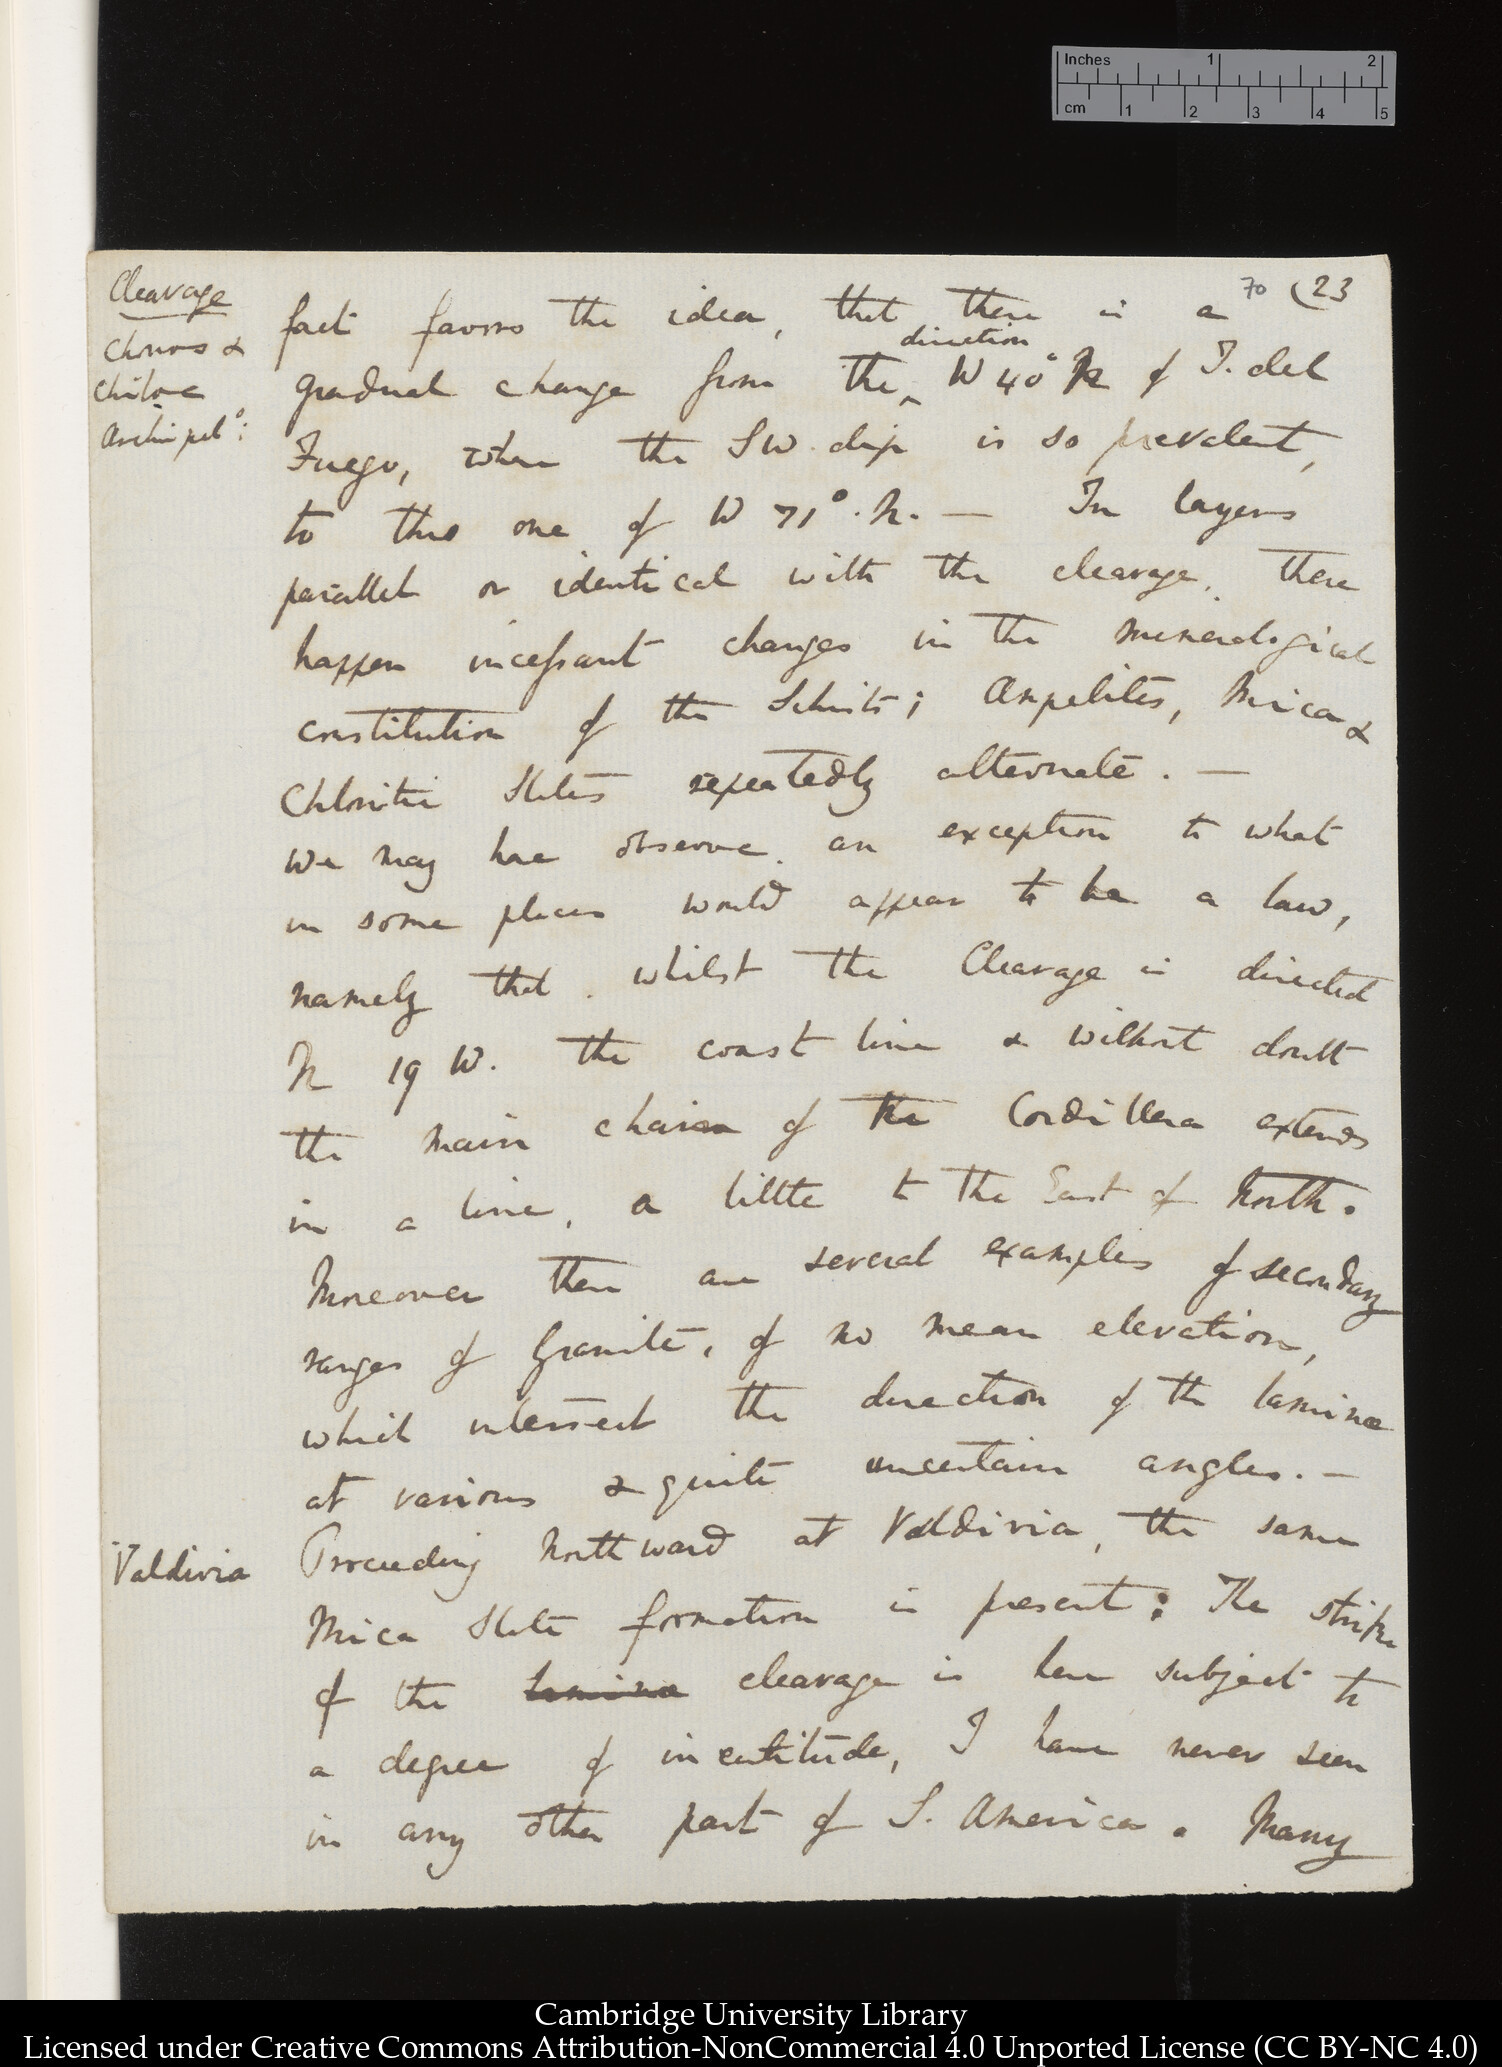 Inches 1 2
cm 1 2 3 4 5
70 (23
Cleavage
Chonos &
Chiloe
Archipelo:
fact favors the idea, that there is a
direction
gradual change from the ^ W 40° N of T. del
Fuego, where the SW. dip is so prevalent,
to this one of W 71°. N. — In layers
parallel or identical with the cleavage, there
happen incessant changes in the mineralogical
constitution of the Schists; Ampelites, Mica &
Chloritic Slates repeatedly alternate. —
We may here observe an exception to what
in some places would appear to be a law,
namely that whilst the Cleavage is directed
N 19 W. the coast line & without doubt
the main chain of the Cordillera extends
in a line, a little to the East of North.
Moreover there are several examples of secondary
ranges of Granite, of no mean elevation,
which intersect the direction of the laminæ
at various & quite uncertain angles. —
Valdivia
Proceeding Northward at Valdivia, the same
Mica Slate formation is present: The strike
of the laminæ cleavage is here subject to
a degree of incertitude, I have never seen
in any other part of S. America. Many
Cambridge University Library
Licensed under Creative Commons Attribution-NonCommercial 4.0 Unported License (CC BY-NC 4.0)